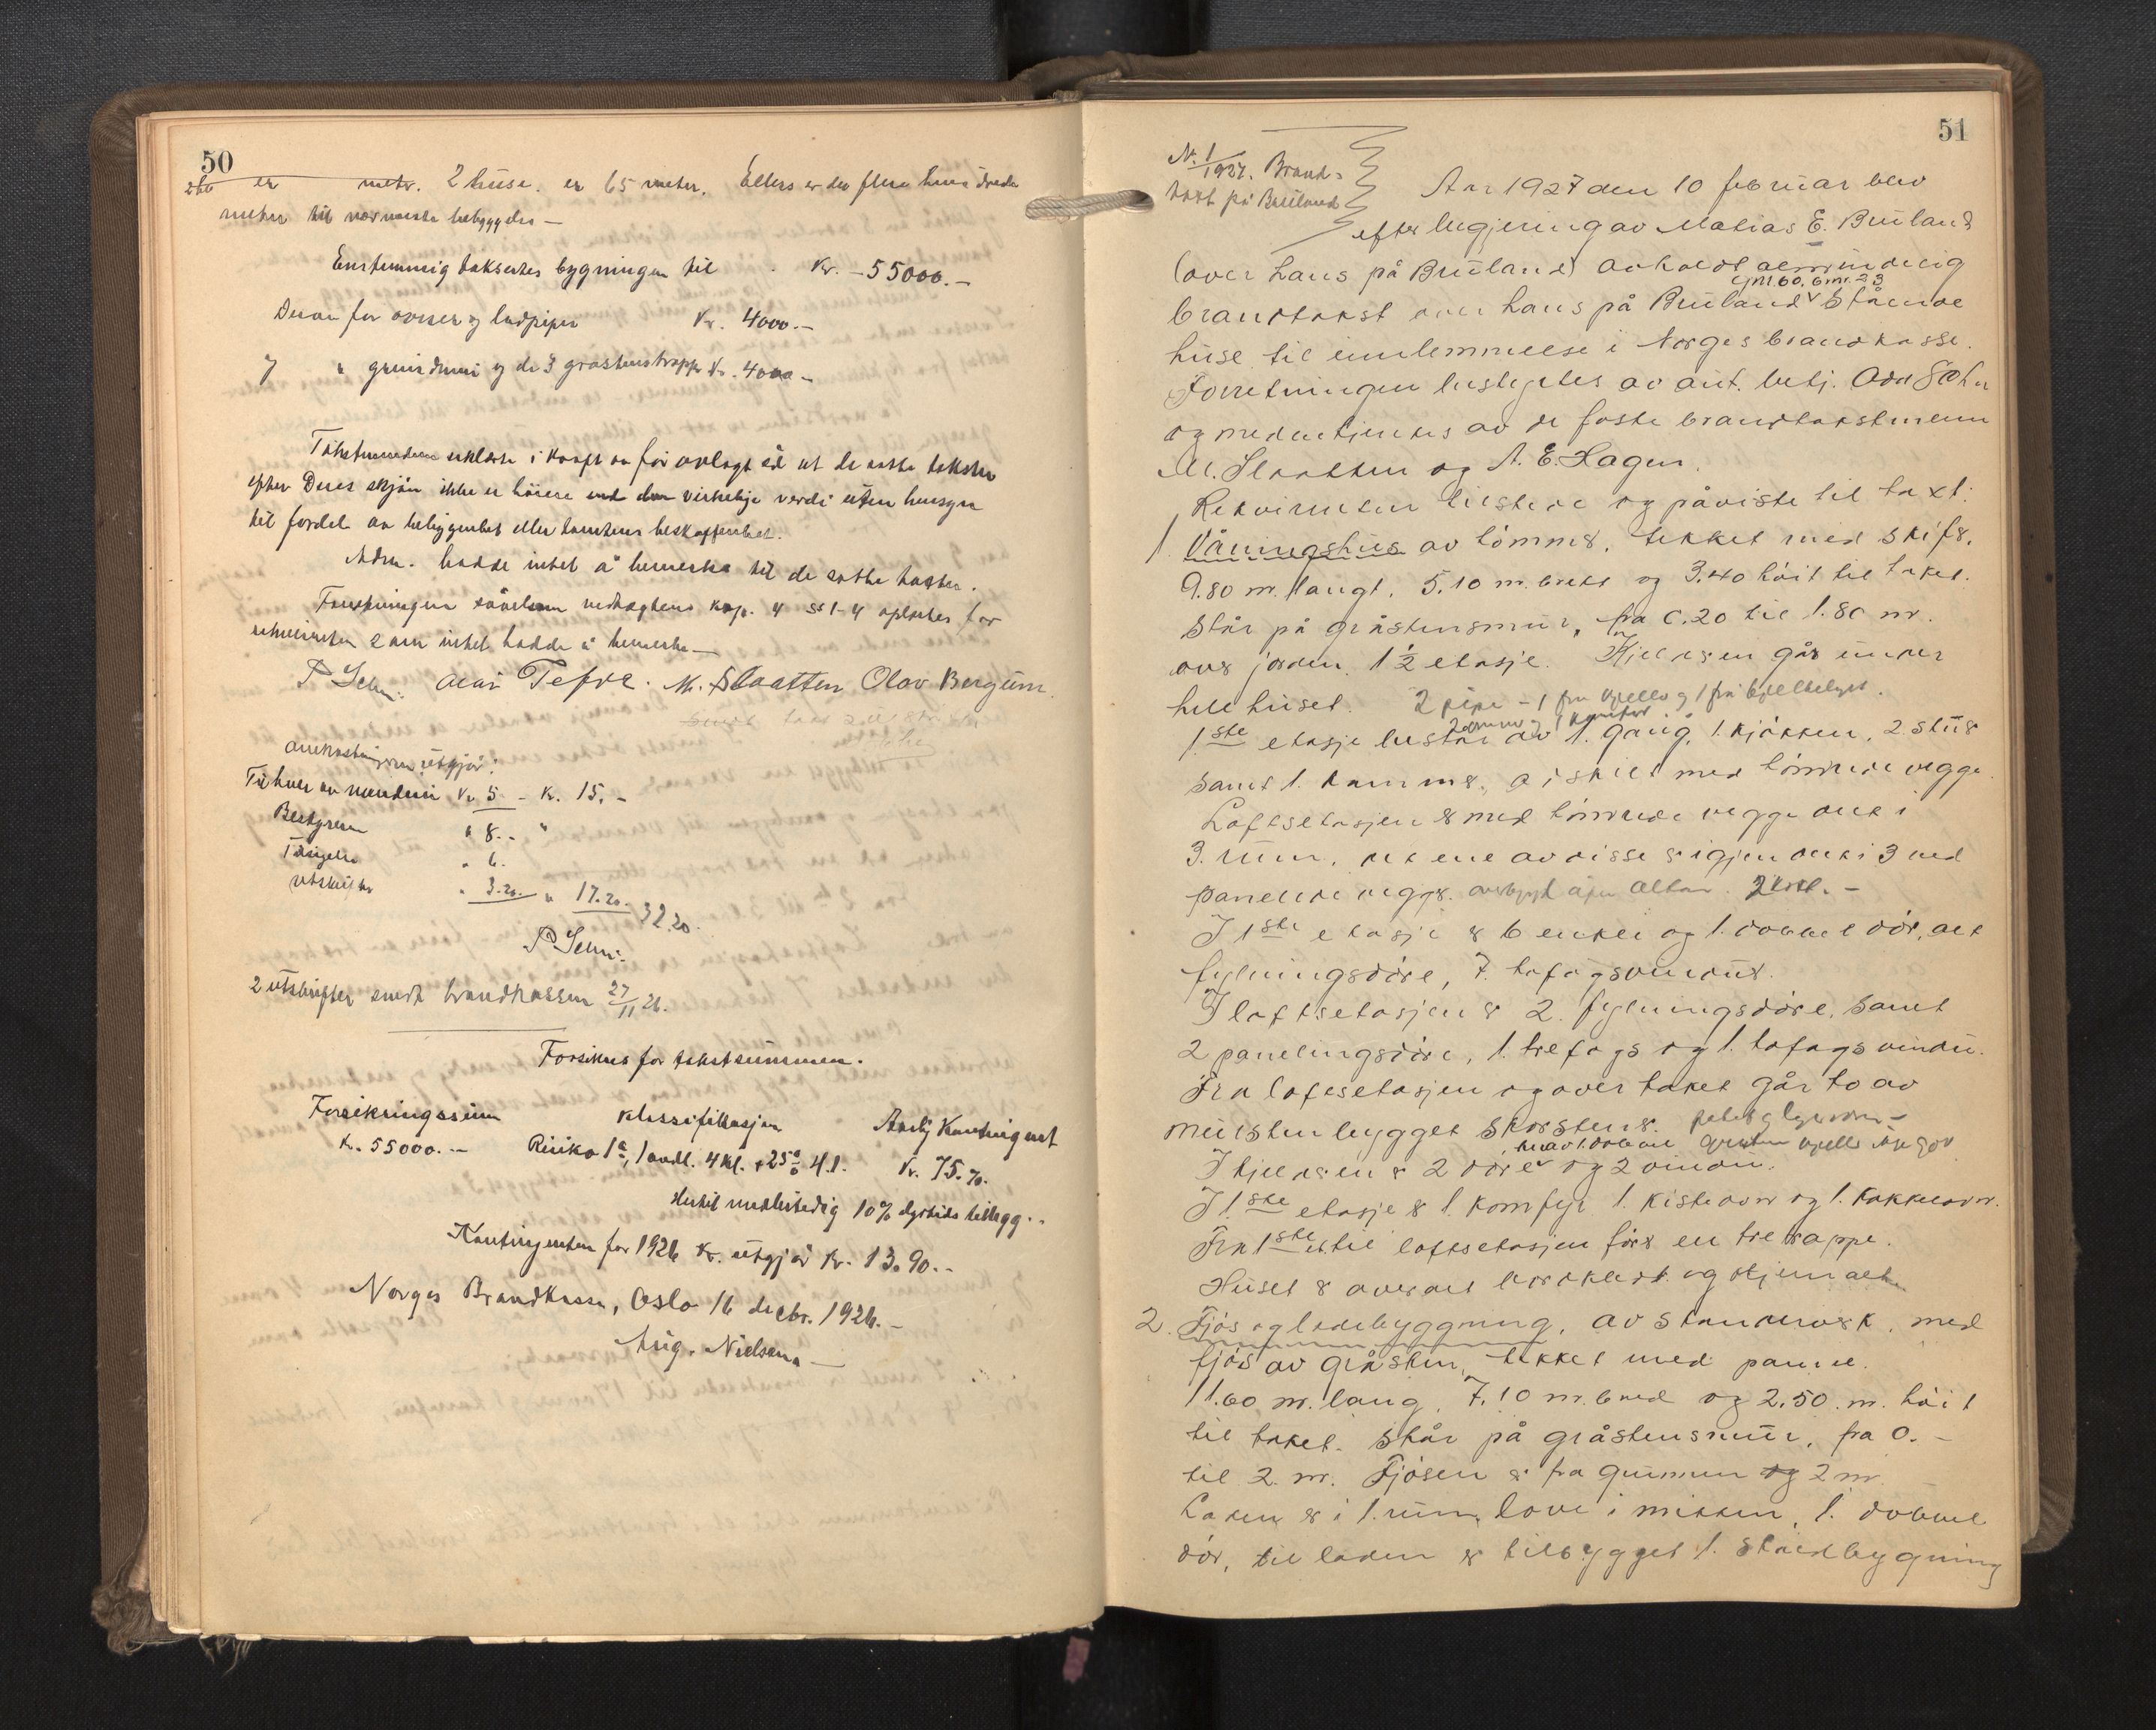 50
er metr. 2 huse. er 65 meter. Ellers er der flere hundrede
meter til nærmeste bebyggelse —
Enstemmig taksertes bygningen til Kr. — 55000.—
Derav for ovner og ludpiper Kr. 4000.—
" grundmur og de 3 gråstenstrapper Kr. 4000.—
Takstmennene erklærte i kraft av før avlagt ed at de satte takster
efter Deres skjøn ikke er høiere end den virkelige verdi uten hensyn
til fordel av beliggenhet eller tomtens beskaffenhet.
Adm. hadde intet å bemerke til de satte takster.
Forretningen såvelsom vedtægtens kap. 4 §§ 1-4 oplæstes for
rekvirenten som intet hadde å bemerke —
M. Slaatten Olav Bergum
Omkostningerne utgjør:
Til hver av mændene Kr 5 - Kr. 15.-
Bestyreren " 8.- "
Tilsigelse " 6.
Utskrifter " 3.20 " 17.20
32.20
2 utskrifter sendt brandkassen 27/11 26.
Forsikres for takstsummen.
Forsikringssum klassifikasjon Årlig Kontingent
Kr. 55000.-- Risiko 1a, 1 avdl. 4 kl. + 25% Kr. 75.70.
Hertil midlertidig 10% dyrtids tillegg.
Kontingenten for 1926 Kr. utgjør Kr. 13.90.-
Norges Brandkasse, Oslo 16 decbr. 1926.-
Aug. Nielsen
51
N. 1/1927. Brand-
takst på Bruland
Aar 1927 den 10 februar blev
efter begjering av Matias E. Bruland
(over hans på Bruland) avholdt almindelig
gnr. 60. bnr. 23
brandtakst over hans på Bruland stående
huse til innlemmelse i Norges brandkasse.
Forretningen bestyrtes av aut. betj. Odd
og medbetjentes av de faste brandtakstmenn
M. Slaatten og A. E. Hagen.
Rekvirenten tilstede og påviste til taxt:
1. Våningshus av tømmer, tekket med skifer.
9.80 m. langt, 5.10 m. bredt og 3.40 høit til taket.
Står på gråstensmur, fra 0.20 til 1.80 m.
over jorden. 1½ etasje. Kjelderen går under
hele huset. 2 piper - 1 fra kjeller og 1 fra
1ste etasje består av 1. gang, 1. kjøkken, 2. stuer
samt 1. kammers, adskilt med tømrede vegge.
Loftsetasjen er med tømrede vegge delt i
3. rum, det ene av disse er igjen delt i 3 med
panelede vegger. overbygd åpen altan.
I 1ste etasje er 6 enkle og 1. dobbel dør, alt
fylningsdøre, 7. tofagsvinduer.
I loftsetasjen er 2. fylningsdøre, samt
2 panelingsdøre, 1. trefags og 1. tofags vindu.
Fra loftsetasjen og over taket går to av
murstenbygget skorstener.
herav 1. dobbel
I kjelderen er 2 døre og 2 vindu.
I 1.ste etasje er 1. komfyr 1. kisteovn og 1. kakkelovn.
Fra 1ste til loftsetasjen fører en tretrappe.
Huset er overalt bordklædt og
2. Fjøs og ladebyggning, av stenderverk, med
fjøs av gråsten, tekket med panne.
11.60 m. lang, 7.10 m. bred og 2.50. m. høit
til taket. Står på gråstensmur, fra 0.-
til 2. m. Fjøsen er fra grunnen og 2 m.
Laden er i 1. rum, love i midten, 1. dobbel
dør, til laden er tilbygget 1. staldbygning